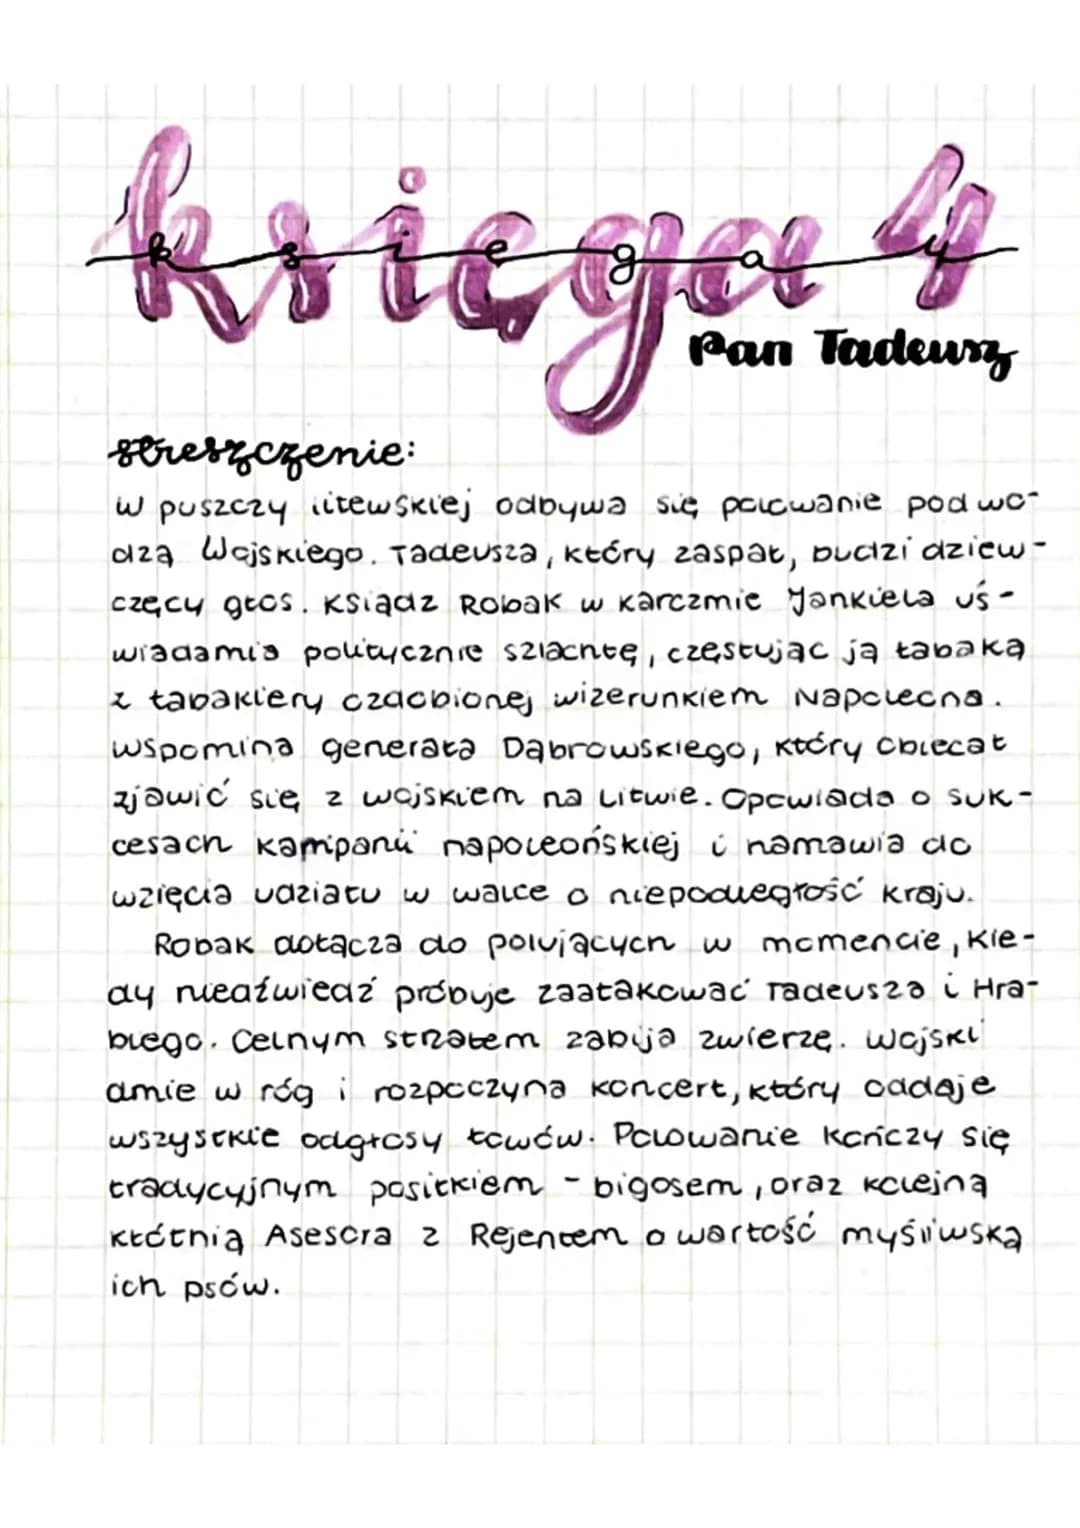 księga 4
k s i ę g a 4
Pan Tadeusz
streszczenie:
W puszczy litewskiej odbywa się polowanie pod wo-
dzą Wojskiego. Tadeusza, który zaspał, budzi dziew-
częcy głos. Ksiądz Robak w karczmie Jankiela uś-
wiadamia politycznie szlachtę, częstując ją tabaką
z tabakiery ozdobionej wizerunkiem Napoleona.
Wspomina generała Dąbrowskiego, który obiecał
zjawić się z wojskiem na Litwie. Opowiada o suk-
cesach kampanii napoleońskiej i namawia do
wzięcia udziału w walce o niepodległość kraju.
Robak dołącza do polujących w momencie, kie-
dy niedźwiedź próbuje zaatakować Tadeusza i Hra-
biego. Celnym strzałem zabija zwierzę. Wojski
dmie w róg i rozpoczyna koncert, który oddaje
wszystkie odgłosy łowów. Polowanie kończy się
tradycyjnym posiłkiem - bigosem, oraz kolejną
kłótnią Asesora z Rejentem o wartość myśliwską
ich psów.